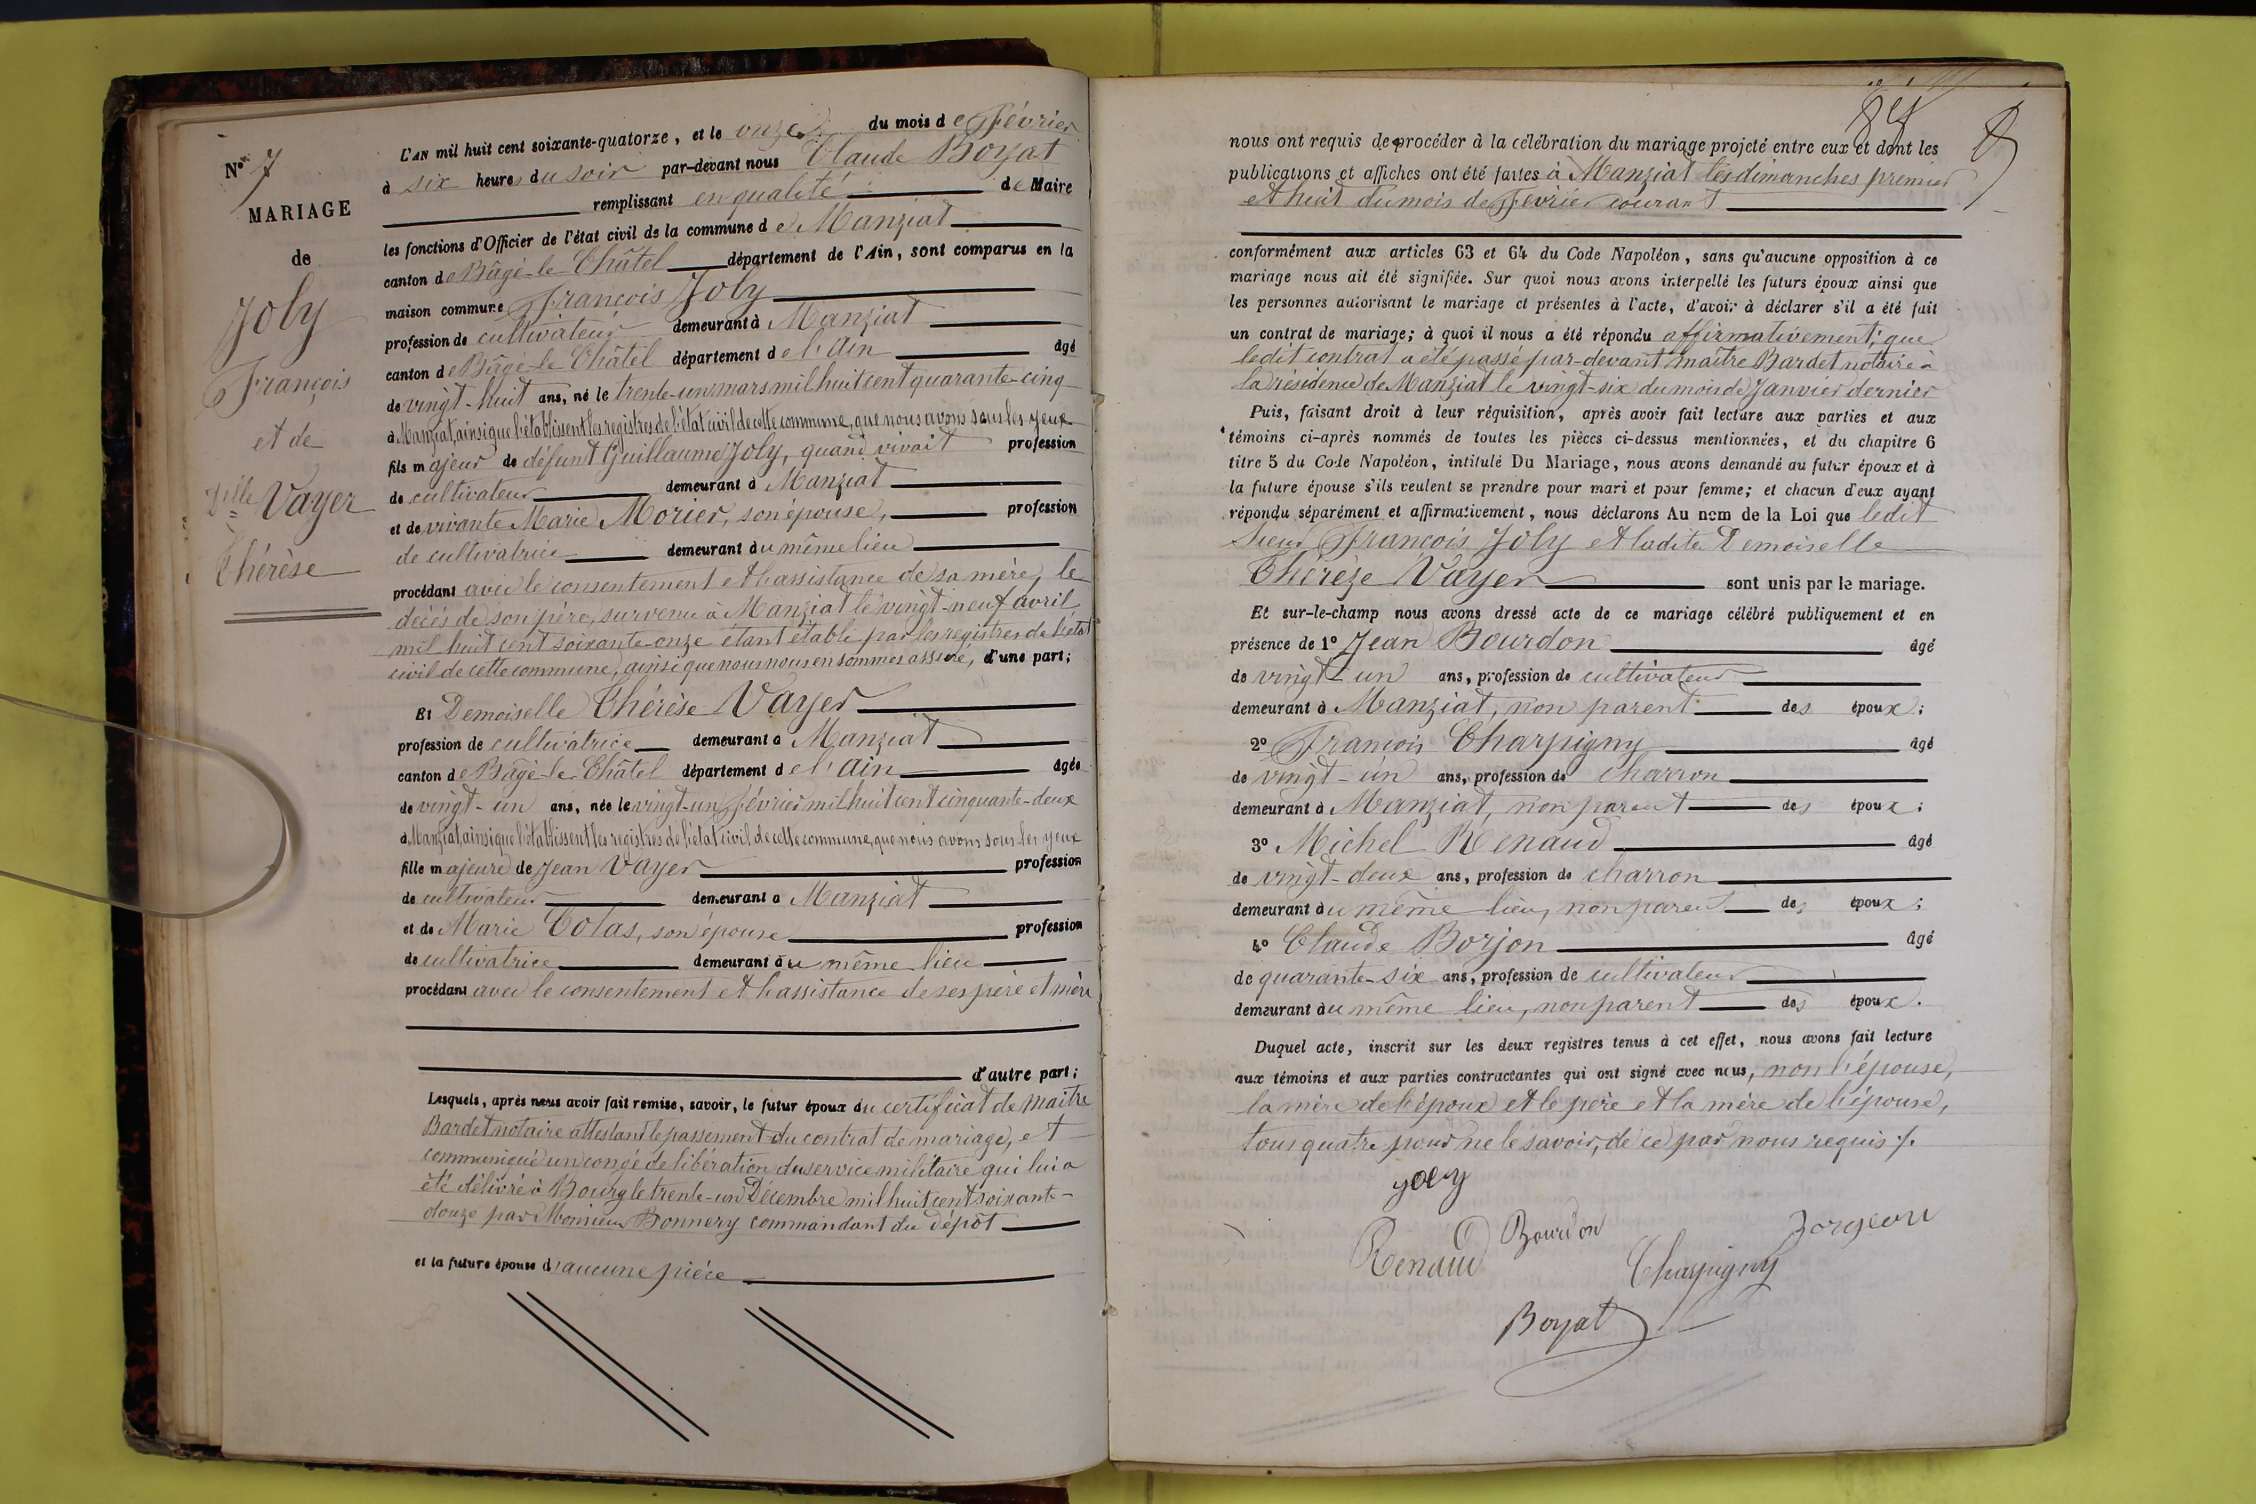 N° 7
MARIAGE
de
Joly
François
et de
Dlle Vayer
Thérèse
L'AN mil huit cent soixante-quatorze, et le onze du mois de Février
à six heures du soir par-devant nous Claude Boyat
remplissant en qualité de Maire
les fonctions d'Officier de l'état civil de la commune de Manziat
canton de Bâgé-le-Châtel département de l'Ain, sont comparus en la
maison commune François Joly
profession de cultivateur demeurant à Manziat
canton de Bâgé-le-Châtel département de l'Ain âgé
de vingt-huit ans, né le trente-un mars mil huit cent quarante-cinq
à Manziat, ainsi que l'établissent les registres de l'état civil de cette commune, que nous avons sous les yeux
fils majeur de défunt Guillaume Joly, quand vivait profession
de cultivateur demeurant à Manziat
et de vivante Marie Morier, son épouse, profession
de cultivatrice demeurant au même lieu
procédant avec le consentement et l'assistance de sa mère, le
décès de son père, survenu à Manziat le vingt-neuf avril
mil huit cent soixante-onze étant établi par les registres de l'état
civil de cette commune, ainsi que nous nous en sommes assuré, d'une part;
Et Demoiselle Thérèse Vayer
profession de cultivatrice demeurant à Manziat
canton de Bâgé-le-Châtel département de l'Ain âgée
de vingt-un ans, née le vingt-un Février mil huit cent cinquante-deux
à Manziat, ainsi que l'établissent les registres de l'état civil de cette commune, que nous avons sous les yeux
fille majeure de Jean Vayer profession
de cultivateur demeurant à Manziat
et de Marie Colas, son épouse profession
de cultivatrice demeurant au même lieu
procédant avec le consentement et l'assistance de ses père et mère
d'autre part;
Lesquels, après nous avoir fait remise, savoir, le futur époux du certificat de maître
Bardet notaire attestant le passement du contrat de mariage, et
communiqué un congé de libération du service militaire qui lui a
été délivré à Bourg le trente-un Décembre mil huit cent soixante-
douze par Monsieur Bonnery commandant du dépôt
et la future épouse d'aucune pièce
nous ont requis de procéder à la célébration du mariage projeté entre eux et dont les
publications et affiches ont été faites à Manziat les dimanches premier
et huit du mois de Février courant
conformément aux articles 63 et 64 du Code Napoléon, sans qu'aucune opposition à ce
mariage nous ait été signifiée. Sur quoi nous avons interpellé les futurs époux ainsi que
les personnes autorisant le mariage et présentes à l'acte, d'avoir à déclarer s'il a été fait
un contrat de mariage; à quoi il nous a été répondu affirmativement; que
ledit contrat a été passé par-devant maître Bardet notaire à
la résidence de Manziat le vingt-six du mois de Janvier dernier
Puis, faisant droit à leur réquisition, après avoir fait lecture aux parties et aux
témoins ci-après nommés de toutes les pièces ci-dessus mentionnées, et du chapitre 6
titre 5 du Code Napoléon, intitulé Du Mariage, nous avons demandé au futur époux et à
la future épouse s'ils veulent se prendre pour mari et pour femme; et chacun d'eux ayant
répondu séparément et affirmativement, nous déclarons Au nom de la Loi que ledit
Sieur François Joly et ladite Demoiselle
Thérèze Vayer sont unis par le mariage.
Et sur-le-champ nous avons dressé acte de ce mariage célébré publiquement et en
présence de 1° Jean Bourdon âgé
de vingt-un ans, profession de cultivateur
demeurant à Manziat, non parent des époux;
2° François Charpigny âgé
de vingt-un ans, profession de charron
demeurant à Manziat, non parent des époux;
3° Michel Renaud âgé
de vingt-deux ans, profession de charron
demeurant au même lieu, non parent des époux;
4° Claude Borjon âgé
de quarante-six ans, profession de cultivateur
demeurant au même lieu, non parent des époux.
Duquel acte, inscrit sur les deux registres tenus à cet effet, nous avons fait lecture
aux témoins et aux parties contractantes qui ont signé avec nous, non l'épouse,
la mère de l'époux et le père et la mère de l'épouse,
tous quatre pour ne le savoir, de ce par nous requis ./.
joly
Renaud Bourdon Borgeon
Charpigny
Boyat